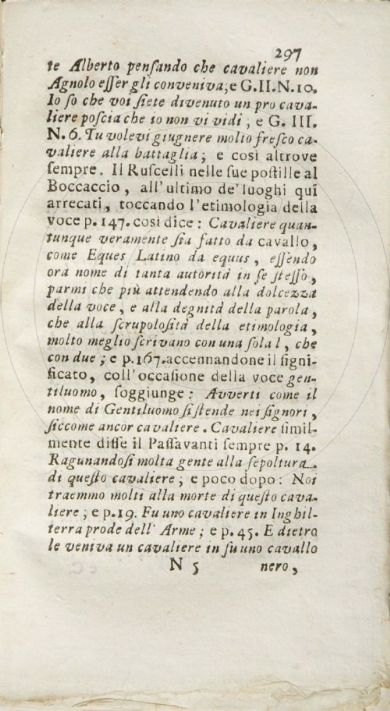 297
te Alberto pensando che cavaliere non
Agnolo esser gli conveniva; e G. II. N. 10.
Io so che voi siete divenuto un pro cava-
liere poscia che io non vi vidi, e G. III.
N. 6. Tu volevi giugnere molto fresco ca-
valiere alla battaglia; e così altrove
sempre. Il Ruscelli nelle sue postille al
Boccaccio, all'ultimo de' luoghi qui
arrecati, toccando l'etimologia della
voce p. 147. così dice: Cavaliere quan-
tunque veramente sia fatto da cavallo,
come Eques Latino da equus, essendo
ora nome di tanta autorità in se stesso,
parmi che più attendendo alla dolcezza
della voce, e alla degnità della parola,
che alla scrupolosità della etimologia,
molto meglio scrivano con una sola l, che
con due; e p. 167. accennandone il signi-
ficato, coll'occasione della voce gen-
tiluomo, soggiunge: Avverti come il
nome di Gentiluomo si stende nei signori,
siccome ancor cavaliere. Cavaliere simil-
mente disse il Passavanti sempre p. 14.
Ragunandosi molta gente alla sepoltura
di questo cavaliere; e poco dopo: Noi
traemmo molti alla morte di questo cava-
liere; e p. 19. Fu uno cavaliere in Inghil-
terra prode dell' Arme; e p. 45. E dietro
le veniva un cavaliere in su uno cavallo
N 5 nero,